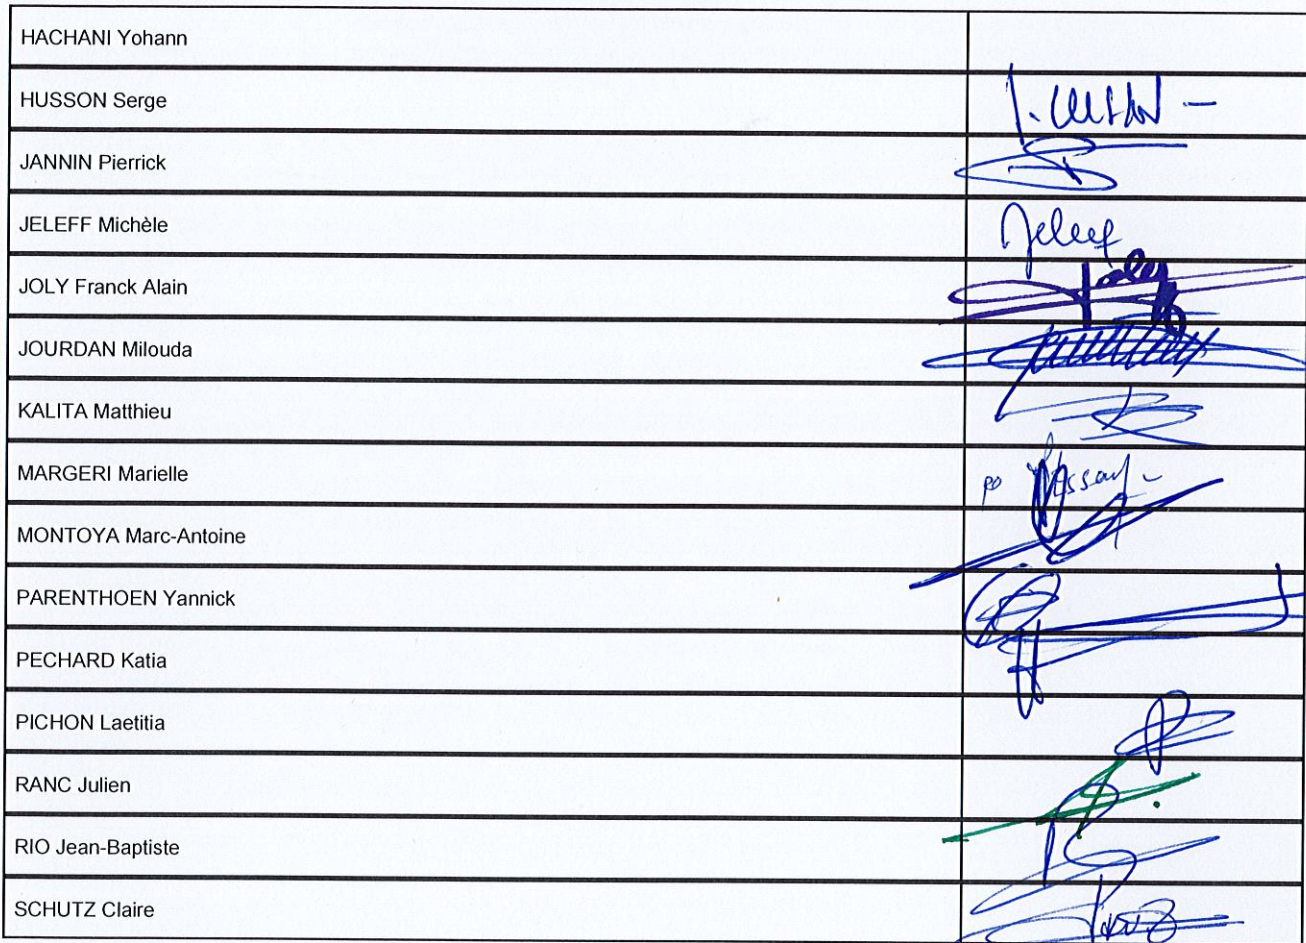 HACHANI Yohann
HUSSON Serge
JANNIN Pierrick
JELEFF Michèle
Jeleef
JOLY Franck Alain
Joly
JOURDAN Milouda
KALITA Matthieu
MARGERI Marielle
po
MONTOYA Marc-Antoine
PARENTHOEN Yannick
PECHARD Katia
PICHON Laetitia
RANC Julien
RIO Jean-Baptiste
SCHUTZ Claire